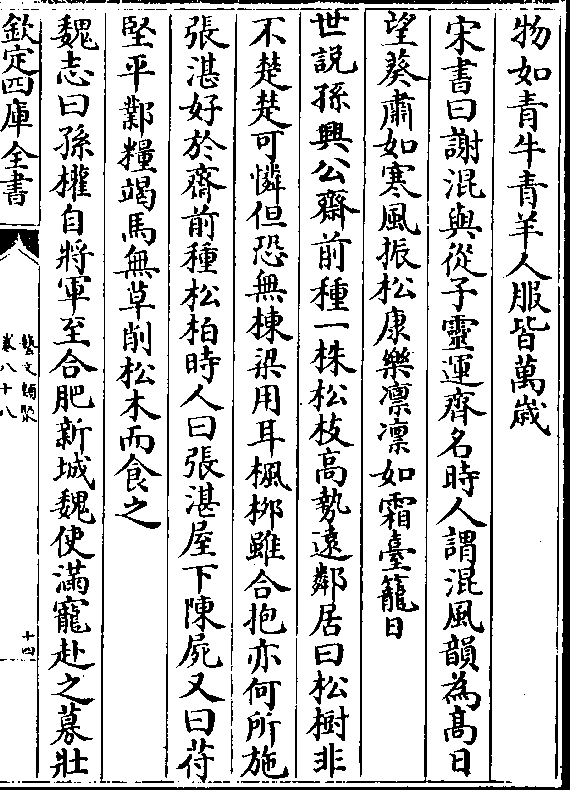 物如青牛青羊人服皆萬歳
宋書曰謝混與從子靈運齊名時人謂混風韻為髙曰
望葵肅如寒風振松康樂凛凛如霜臺籠日
世說孫興公齋前種一株松枝高勢遠鄰居曰松樹非
不楚楚可憐但恐無棟梁用耳楓柳雖合抱亦何所施
張湛好於齋前種松柏時人曰張湛屋下陳屍又曰苻
堅平鄴糧竭馬無草削松木而食之
魏志曰孫權自將軍至合肥新城魏使滿寵赴之募壮
欽定四庫全書
藝文類聚
卷八十八
十四